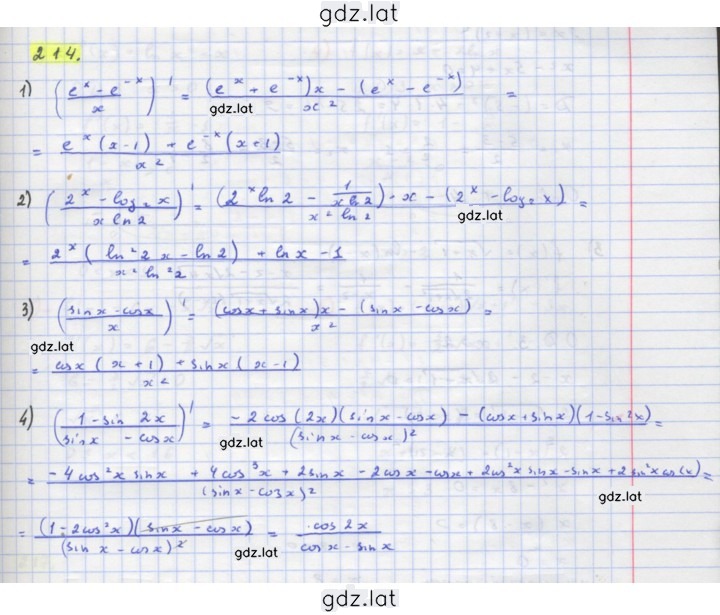 gdz.lat
214.
1) ((e^x - e^-x)/x)' = ((e^x + e^-x)x - (e^x - e^-x))/x^2 =
gdz.lat
= (e^x(x-1) + e^-x(x+1))/x^2
2) ((2^x - log_2 x)/(x ln 2))' = ((2^x ln 2 - 1/(x ln 2))·x - (2^x - log_2 x))/(x^2 ln 2) =
gdz.lat
= (2^x(ln^2 2 x - ln 2) + ln x - 1)/(x^2 ln^2 2)
3) ((sin x - cos x)/x)' = ((cos x + sin x)x - (sin x - cos x))/x^2 =
gdz.lat
= (cos x(x+1) + sin x(x-1))/x^2
4) ((1 - sin 2x)/(sin x - cos x))' = (-2cos(2x)(sin x - cos x) - (cos x + sin x)(1 - sin 2x))/(sin x - cos x)^2 =
gdz.lat
= (-4cos^2 x sin x + 4cos^3 x + 2sin x - 2cos x - cos x + 2cos^2 x sin x - sin x + 2sin^2 x cos(x))/(sin x - cos x)^2 =
gdz.lat
= ((1 - 2cos^2 x)(sin x - cos x))/(sin x - cos x)^2 = cos 2x/(cos x - sin x)
gdz.lat
gdz.lat